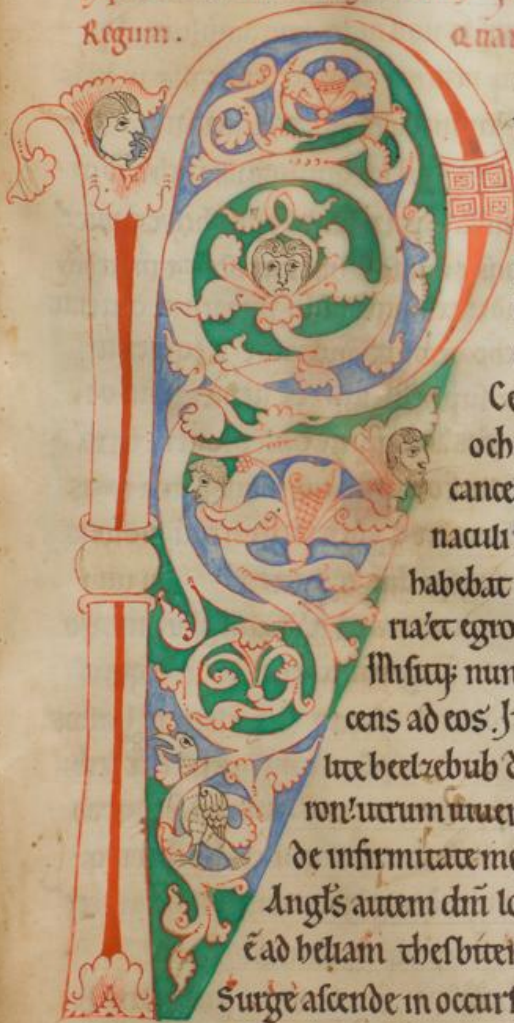 Regum.
Quar
P
Ce
och
cance
naculi
habebat
ria' et egro
Misitq; nun
cens ad eos. J
lite beelzebub
ron' utrum uiuer
de infirmitate me
Angl's autem dñi lo
ē ad heliam thesbiten
Surge ascende in occurs